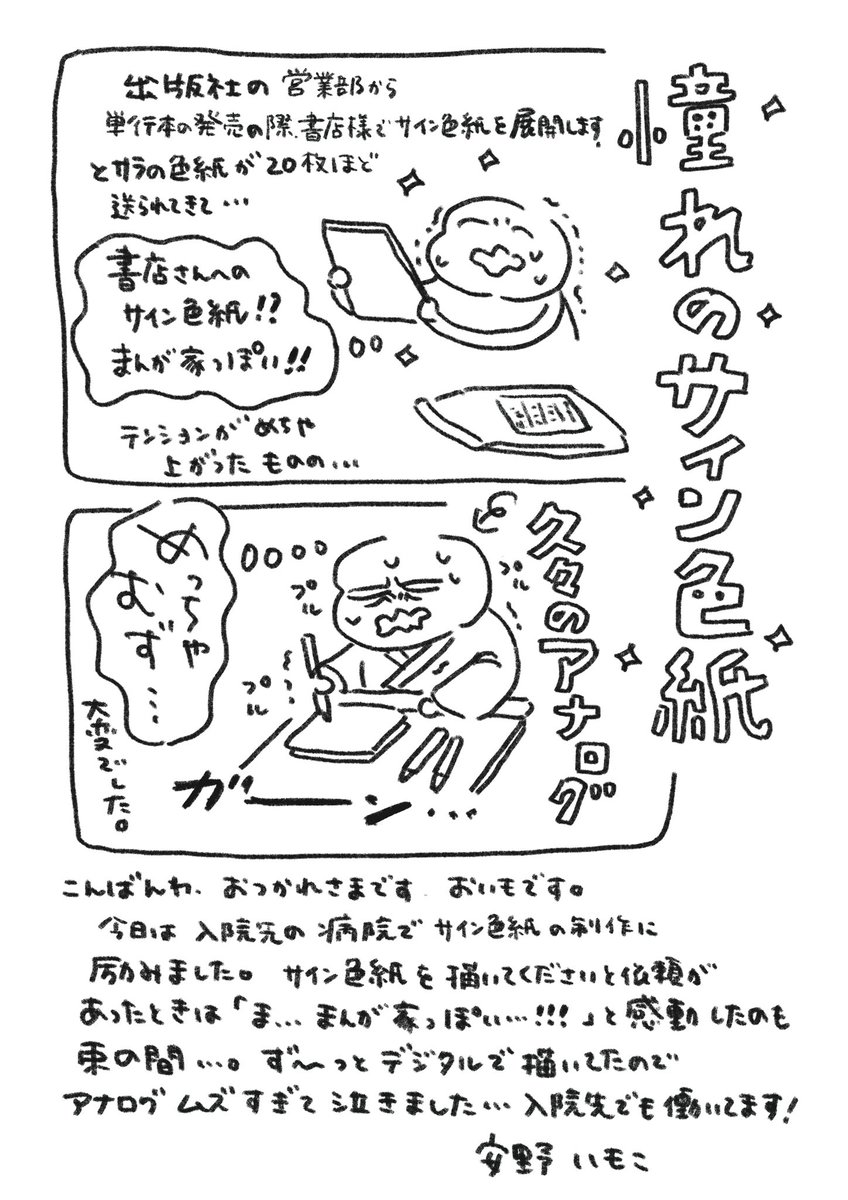 憧れのサイン色紙
出版社の営業部から
単行本の発売の際、書店様でサイン色紙を展開します
とサラの色紙が20枚ほど
送られてきて…
書店さんへの
サイン色紙!?
まんが家っぽい!!
テンションがめちゃ
上がったものの…
久々のアナログ
プル
プル
プル
めっちゃ
むず…
大変でした。
ガーン…
こんばんわ、おつかれさまです おいもです。
今日は入院先の病院でサイン色紙の制作に
励みました。サイン色紙を描いてくださいと依頼が
あったときは「ま…まんが家っぽい…!!!」と感動したのも
束の間…。ず〜っとデジタルで描いてたので
アナログムズすぎて泣きました…入院先でも働いてます!
安野いもこ